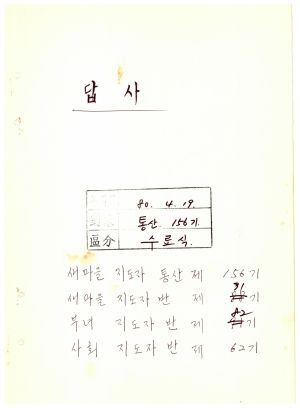 답 사
80. 4. 19.
통산. 156기
區分 수료식.
새마을 지도자 통산 제 156기
새마을 지도자 반 제 91기
부녀 지도자 반 제 82기
사회 지도자 반 제 62기